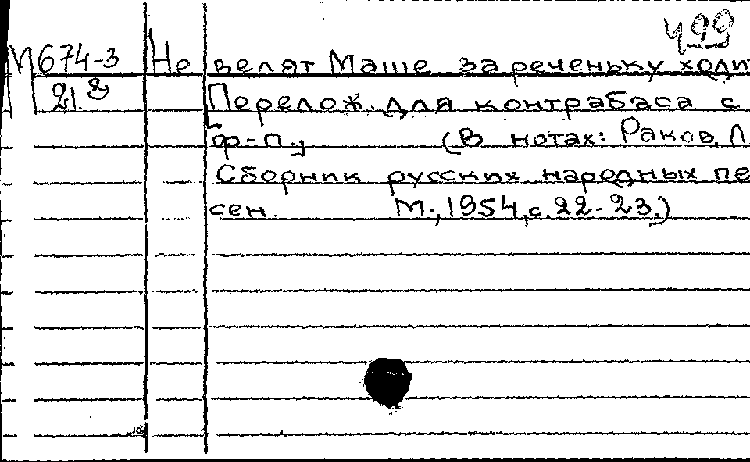 499
М674-3 Не велят Маше за реченьку ходи
21.8 Перелож. для контрабаса с
ф-п. (В нотах: Раков, Л
Сборник русских народных пе
сен. М., 1954, с. 22-23.)